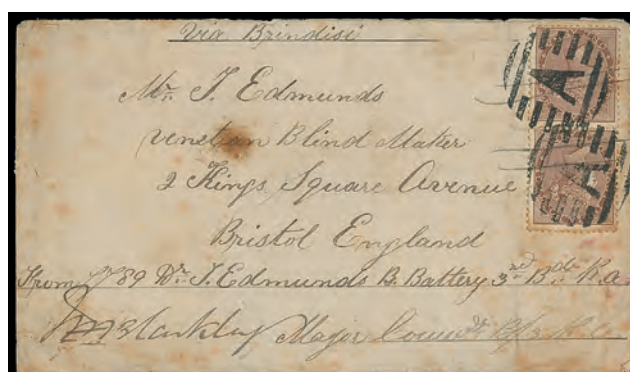 Via Brindisi
Mr. J. Edmunds
Venetian Blind Maker
2 Kings Square Avenue
Bristol England
From 789 Dr. J. Edmunds B. Battery 3rd Bde R.A.
Major Comdg B/3 R.A.
A
A